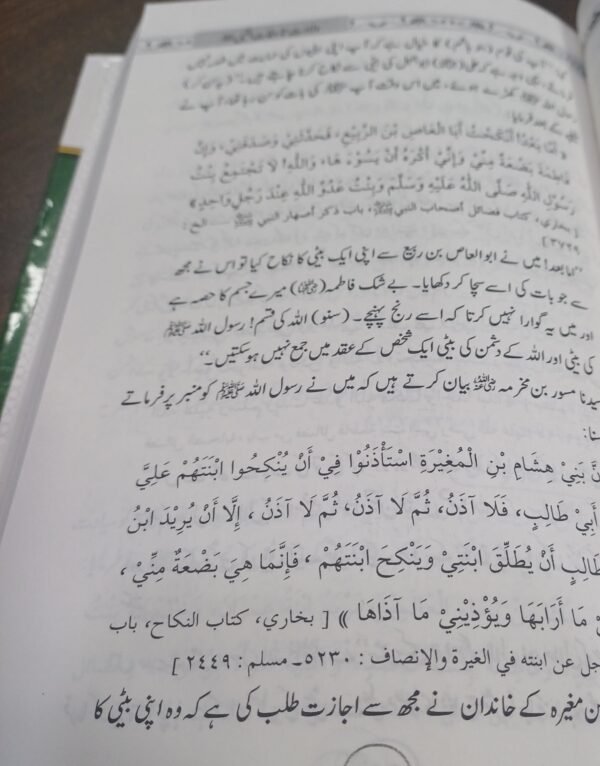 کہ ”آپ کی قوم (بنو ہاشم) کا خیال ہے کہ آپ اپنی بیٹیوں کی
کی بیٹی سے نکاح کرنا چاہتے ہیں۔“
کھڑے ہوئے، میں اس وقت آپ ﷺ کی بات کو سن رہا تھا، آپ نے
کے بعد فرمایا:
« أَمَّا بَعْدُ! أَنْكَحْتُ أَبَا الْعَاصِ بْنَ الرَّبِيْعِ، فَحَدَّثَنِيْ وَصَدَقَنِيْ، وَإِنَّ
فَاطِمَةَ بَضْعَةٌ مِنِّيْ وَإِنِّيْ أَكْرَهُ أَنْ يَسُوْءَهَا، وَاللّٰهِ! لَا تَجْتَمِعُ بِنْتُ
رَسُوْلِ اللّٰهِ صَلَّى اللّٰهُ عَلَيْهِ وَسَلَّمَ وَبِنْتُ عَدُوِّ اللّٰهِ عِنْدَ رَجُلٍ وَاحِدٍ »
[ بخاري، كتاب فضائل أصحاب النبي ﷺ، باب ذكر أصهار النبي ﷺ ... الخ :
٣٧٢٩ ]
”اما بعد! میں نے ابو العاص بن ربیع سے اپنی ایک بیٹی کا نکاح کیا تو اس نے مجھ
سے جو بات کی اسے سچا کر دکھایا۔ بے شک فاطمہ (رضی اللہ عنہا) میرے جسم کا حصہ ہے
اور میں یہ گوارا نہیں کرتا کہ اسے رنج پہنچے۔ (سنو) اللہ کی قسم! رسول اللہ ﷺ
کی بیٹی اور اللہ کے دشمن کی بیٹی ایک شخص کے عقد میں جمع نہیں ہو سکتیں۔“
سیدنا مسور بن مخرمہ رضی اللہ عنہ بیان کرتے ہیں کہ میں نے رسول اللہ ﷺ کو منبر پر فرماتے
سنا:
نَّ بَنِيْ هِشَامِ بْنِ الْمُغِيْرَةِ اسْتَأْذَنُوْا فِيْ أَنْ يُنْكِحُوا ابْنَتَهُمْ عَلِيَّ
أَبِيْ طَالِبٍ، فَلَا آذَنُ، ثُمَّ لَا آذَنُ، ثُمَّ لَا آذَنُ ، إِلَّا أَنْ يُرِيْدَ ابْنُ
طَالِبٍ أَنْ يُطَلِّقَ ابْنَتِيْ وَيَنْكِحَ ابْنَتَهُمْ ، فَإِنَّمَا هِيَ بَضْعَةٌ مِّنِّيْ ،
مَا أَرَابَهَا وَيُؤْذِيْنِيْ مَا آذَاهَا » [ بخاري، كتاب النكاح، باب
جل عن ابنته في الغيرة والإنصاف : ٥٢٣٠ـ مسلم : ٢٤٤٩ ]
ن مغیرہ کے خاندان نے مجھ سے اجازت طلب کی ہے کہ وہ اپنی بیٹی کا